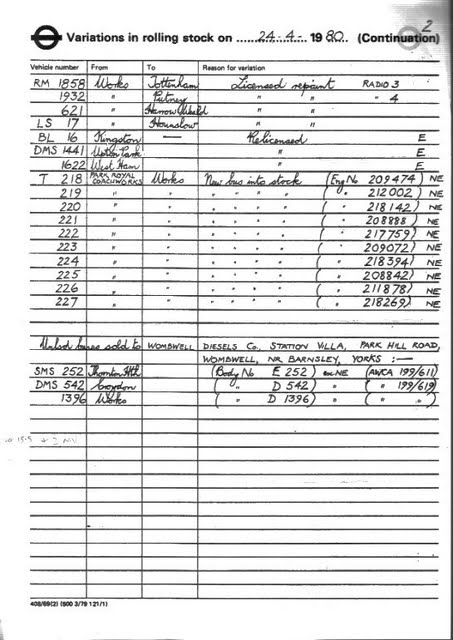 2
Variations in rolling stock on 24-4- 1980. (Continuation)
Vehicle number From To Reason for variation
RM 1858 Works Tottenham Licensed repaint RADIO 3
1932 " Putney " " " 4
621 " Harrow Weald " "
LS 17 " Hounslow " "
BL 16 Kingston — Relicensed E
DMS 1441 Upton Park " E
1622 West Ham " E
T 218 PARK ROYAL COACHWORKS Works New bus into stock (Eng. No 209474) NE
219 " " " " " " ( " 212002) NE
220 " " " " " " ( " 218142) NE
221 " " " " " " ( " 208888) NE
222 " " " " " " ( " 217759) NE
223 " " " " " " ( " 209072) NE
224 " " " " " " ( " 218394) NE
225 " " " " " " ( " 208842) NE
226 " " " " " " ( " 211878) NE
227 " " " " " " ( " 218269) NE
Unlicsd buses sold to WOMBWELL DIESELS Co., STATION VILLA, PARK HILL ROAD,
WOMBWELL, NR. BARNSLEY, YORKS :—
SMS 252 Thornton Hth (Body No E 252) ex NE (AWCA 199/611)
DMS 542 Croydon ( " D 542) " ( " 199/619)
1396 Works ( " D 1396) " ( " " )
408/69(2) (500 3/79 121/1)